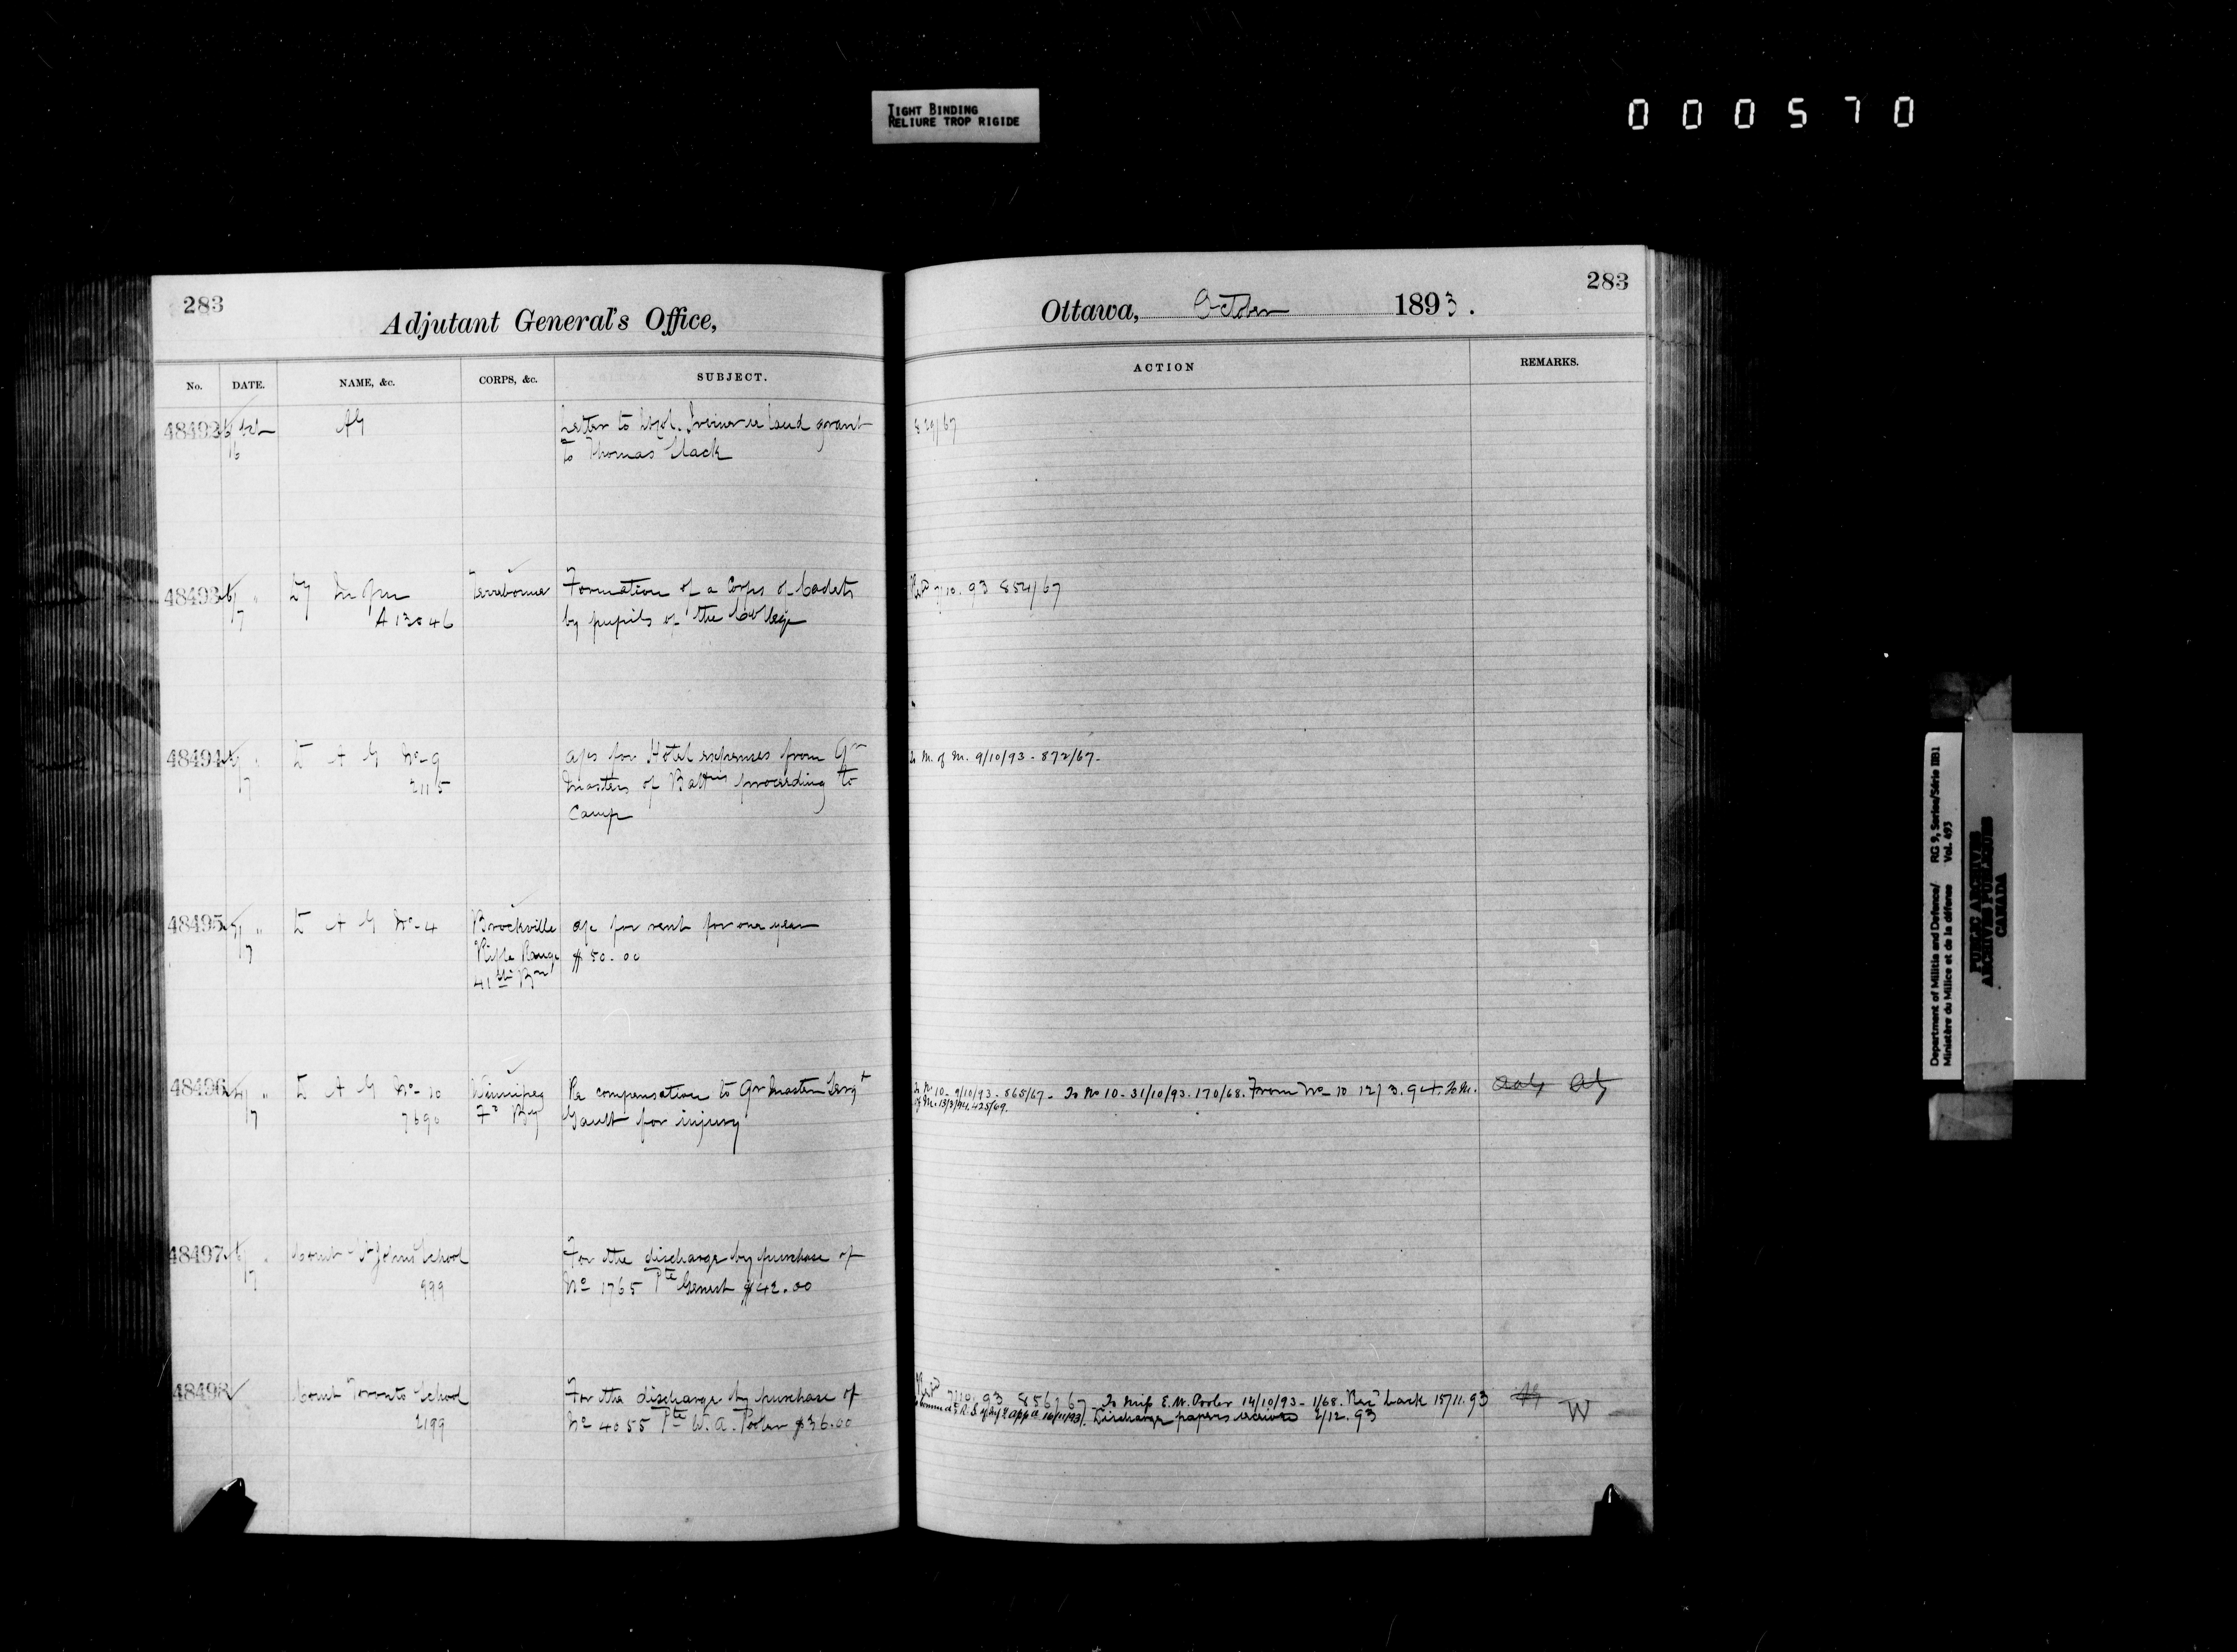 TIGHT BINDING
RELIURE TROP RIGIDE
000570
283
Adjutant General's Office,
No. DATE. NAME, &c. CORPS, &c. SUBJECT.
48492 AG Letter to land grant
16 to Thomas
48493 17 Terrebonne Formation of a Corps of Cadets
A 13046 by pupils of the College
48494 A G No 9 a/cs for Hotel expenses from Qr
17 2115 Masters of Battns proceeding to
Camp
48495 A G No 4 Brockville a/c for rent for one year
17 Rifle Range $50.00
41st Bn
48496 A G No 10 Winnipeg Re compensation to Qr Master Sergt
17 7690 Fd By Gault for injury
48497 Comt St Johns School For the discharge by purchase of
17 999 No 1765 Pte Genest $42.00
48498 Comt Toronto School For the discharge by purchase of
2199 No 4055 Pte W. A. Pooler $36.00
283
Ottawa, October 1893.
ACTION REMARKS.
829/67
7/10.93 854/67
To M. of M. 9/10/93 - 872/67.
To No 10 - 9/10/93 - 865/67 - To No 10 - 31/10/93. 170/68. From No 10 12/3.94. To M.
of M. 13/3/94. 425/69.
7/10.93 856/67 - To Miss E. M. Pooler 14/10/93 - 1/68. Recd back 15/11.93
16/11/93. Discharge papers received 2/12.93 W
Department of Militia and Defence/ RG 9, Series/Série IIB1
Ministère du Milice et de la défense Vol. 493
PUBLIC ARCHIVES
ARCHIVES PUBLIQUES
CANADA